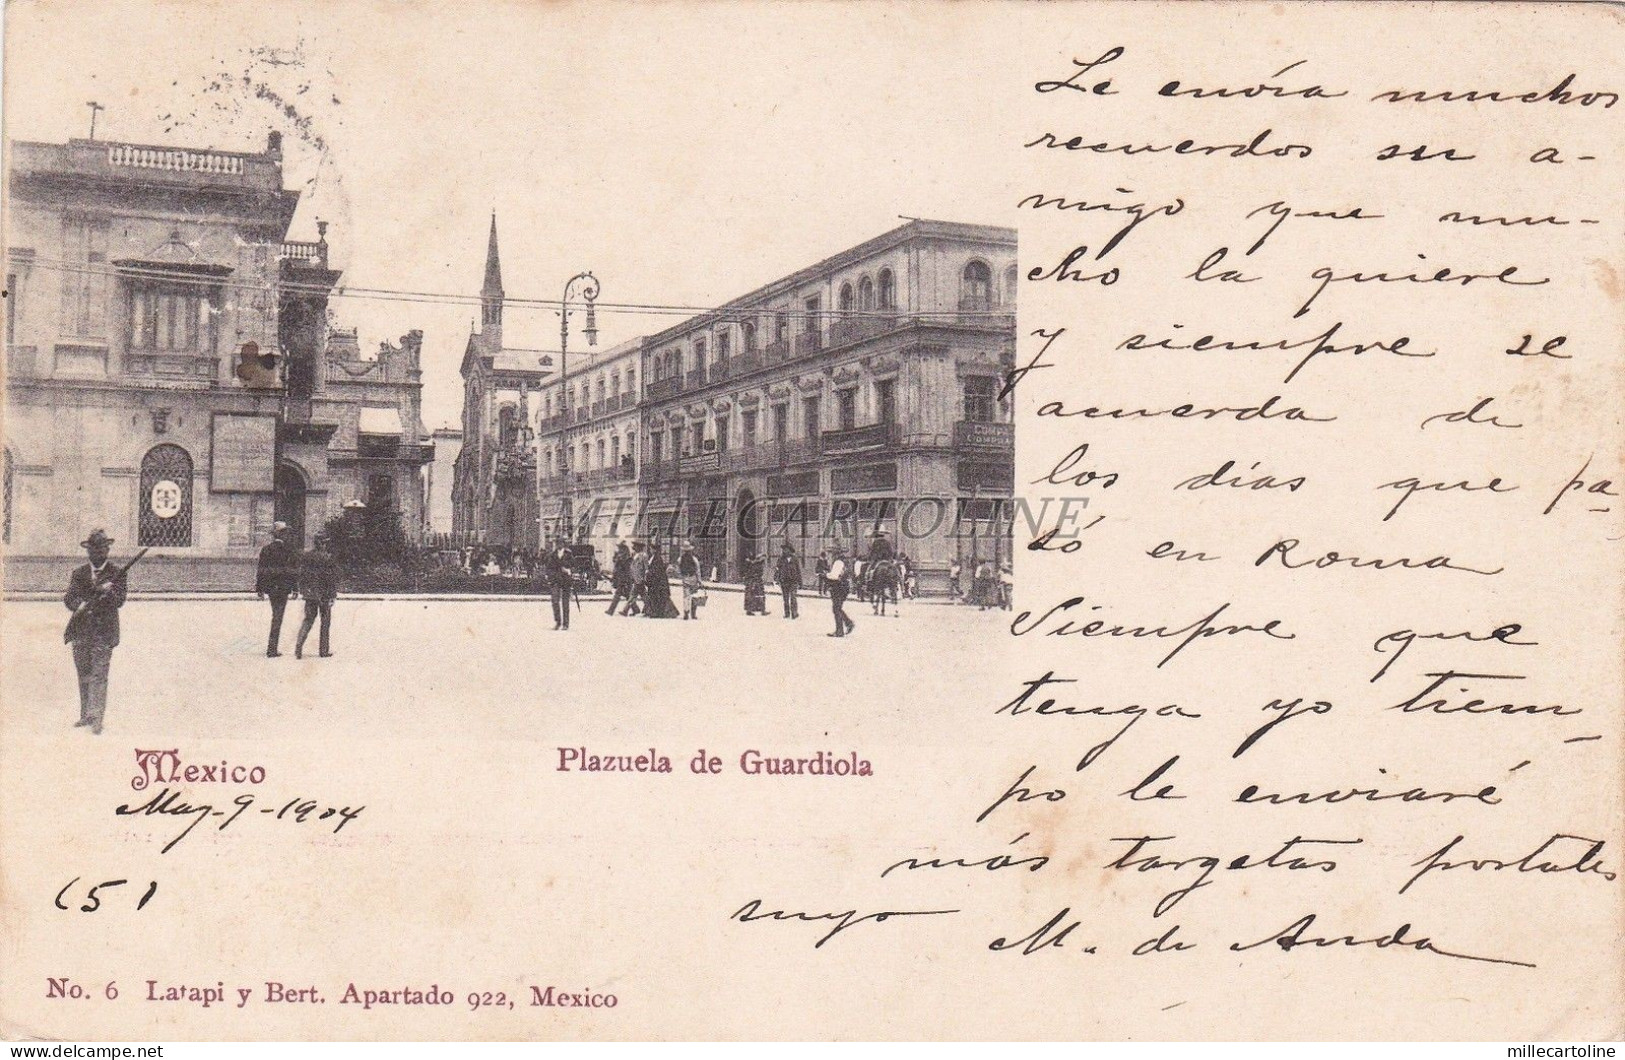 Le envía muchos
recuerdos su a-
migo que mu-
cho la quiere
y siempre se
acuerda de
los días que pa-
só en Roma
Siempre que
tenga yo tiem-
po le enviaré
más targetas postales
suyo
M. de Anda
COMPRA
MILLECARTOLINE
Mexico
Plazuela de Guardiola
May-9-1904
(5)
No. 6 Latapi y Bert. Apartado 922, Mexico
delcampe.net
millecartoline